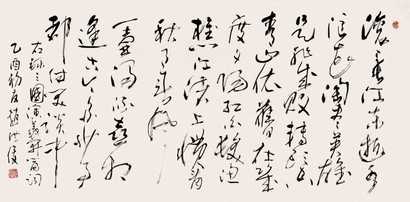 滚滚长江东逝水
浪花淘尽英雄
是非成败转头空
青山依旧在几
度夕阳红白发渔
樵江渚上惯看
秋月春风
一壶浊酒喜相
逢古今多少事
都付笑谈中
右录三国演义开篇词
乙酉秋